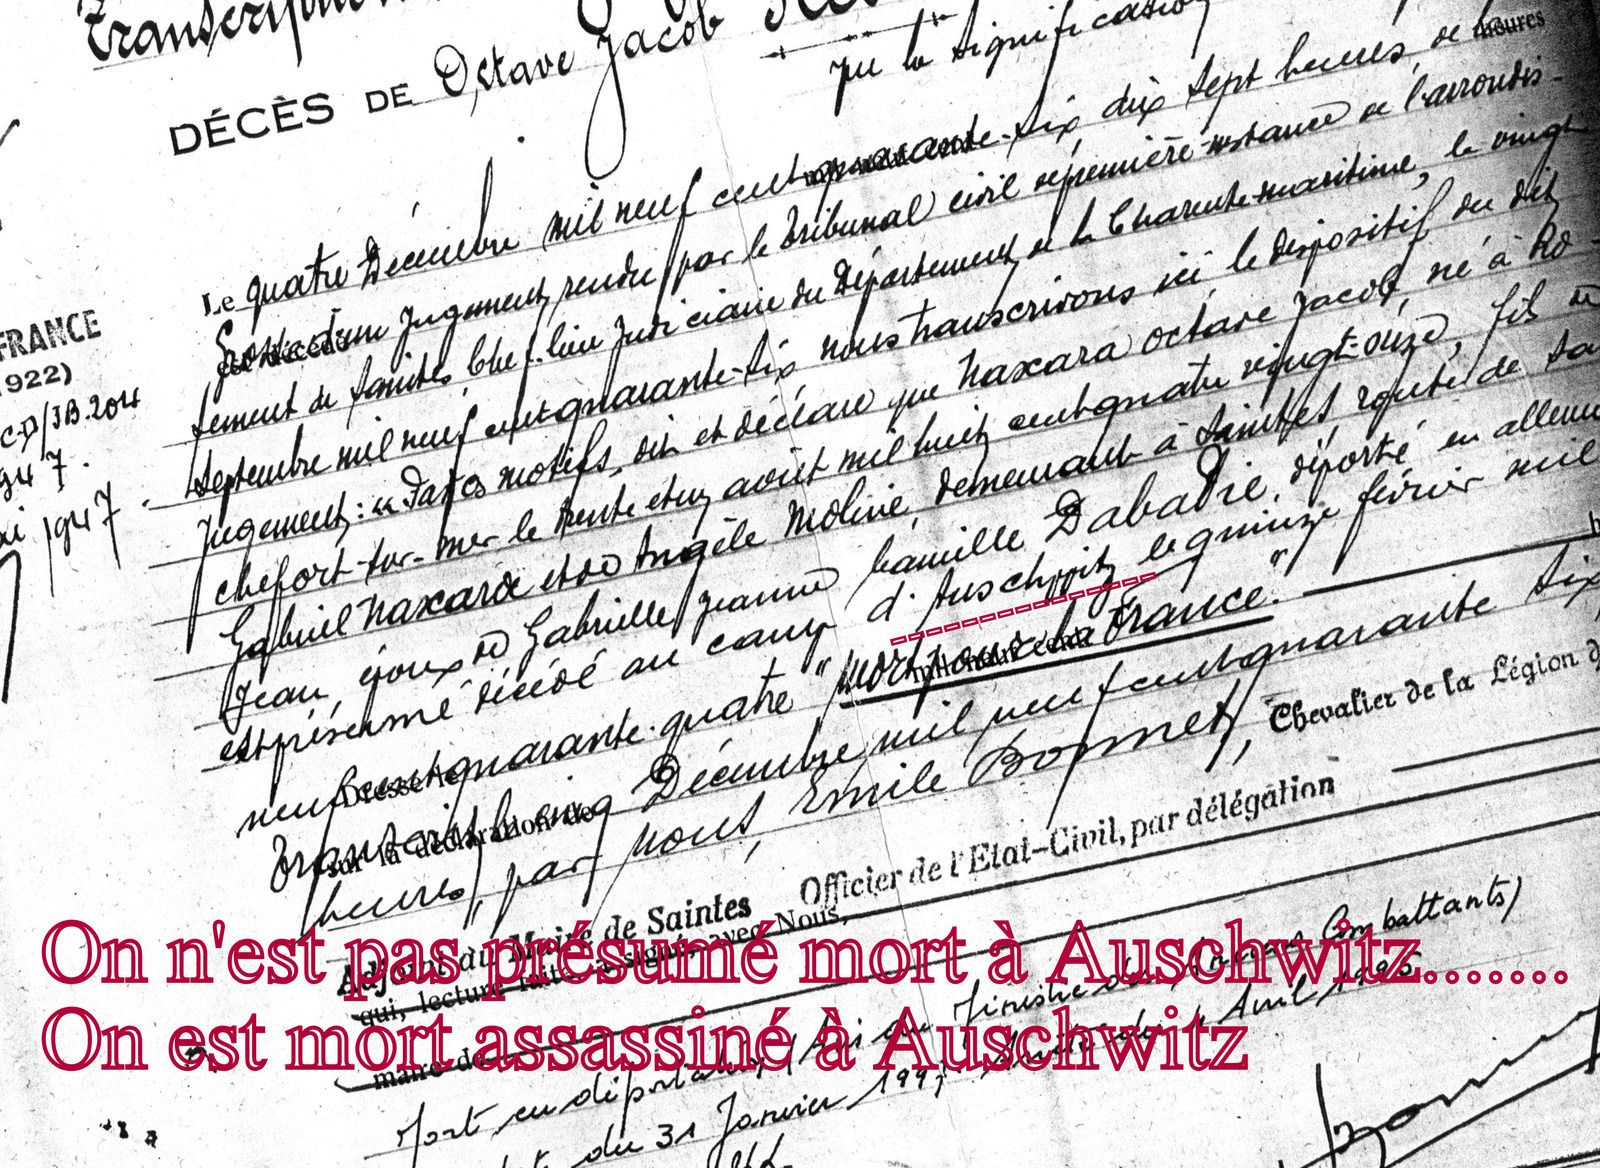 Transcription
DÉCÈS DE Octave Jacob
Vu la signification
Le quatre Décembre mil neuf cent quarante-six, dix sept heures, de heures
est décédé jugement rendu par le Tribunal civil de première instance de l'arrondis-
sement de Saintes, chef-lieu judiciaire du Département de la Charente-maritime, le vingt
Septembre mil neuf cent quarante-six nous transcrivons ici le dispositif du dit
Jugement : « Par ces motifs, dit et déclare que Naxara octave Jacob, né à Ro-
chefort-sur-mer le trente et un août mil huit cent quatre vingt-onze, fils de
Gabriel Naxara et de Angèle Moline, demeurant à Saintes, route de
Jean, époux de Gabrielle Jeanne Camille Dabadie, déporté en allem
est présumé décédé au camp d'Auschwitz le quinze février mil
neuf cent quarante-quatre "Mort pour la France."
Dressé le
Transcrit le cinq Décembre mil neuf cent quarante six,
sur la déclaration de
heures, par nous, Emile Bonnet, Chevalier de la Légion d
Adjoint au Maire de Saintes Officier de l'Etat-Civil, par délégation
qui, lecture faite, a signé avec Nous,
maire de
Mort en déportation (Ministre des Anciens Combattants)
du 31 Janvier Avril 1996
FRANCE
1922)
947.
1947.
On n'est pas présumé mort à Auschwitz.......
On est mort assassiné à Auschwitz